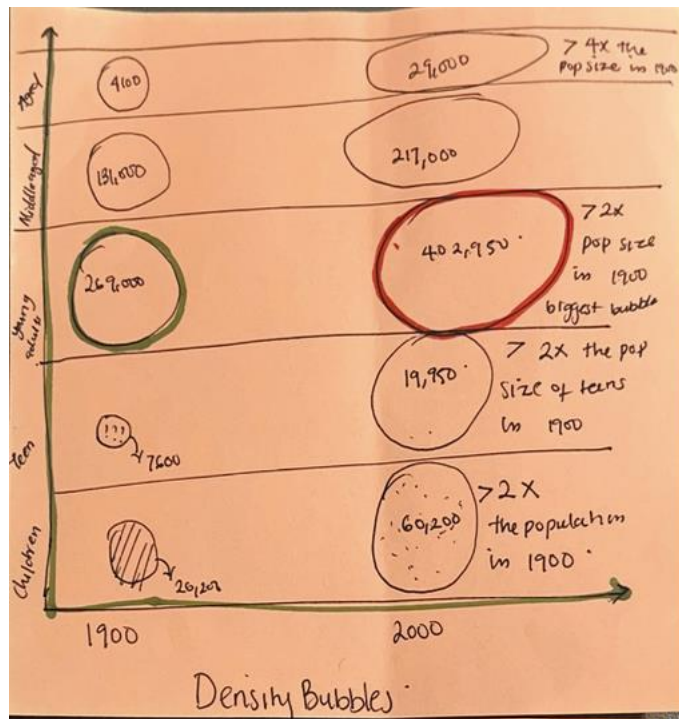 Aged
4100
29,000
> 4x the
pop size in 1900
Middleaged
131,000
217,000
young
adults
269,000
402,950
> 2x
pop size
in 1900
biggest bubble
Teen
!!!
7600
19,950
> 2x the pop
size of teens
in 1900
Children
20,200
60,200
> 2x
the population
in 1900.
1900
2000
Density Bubbles.